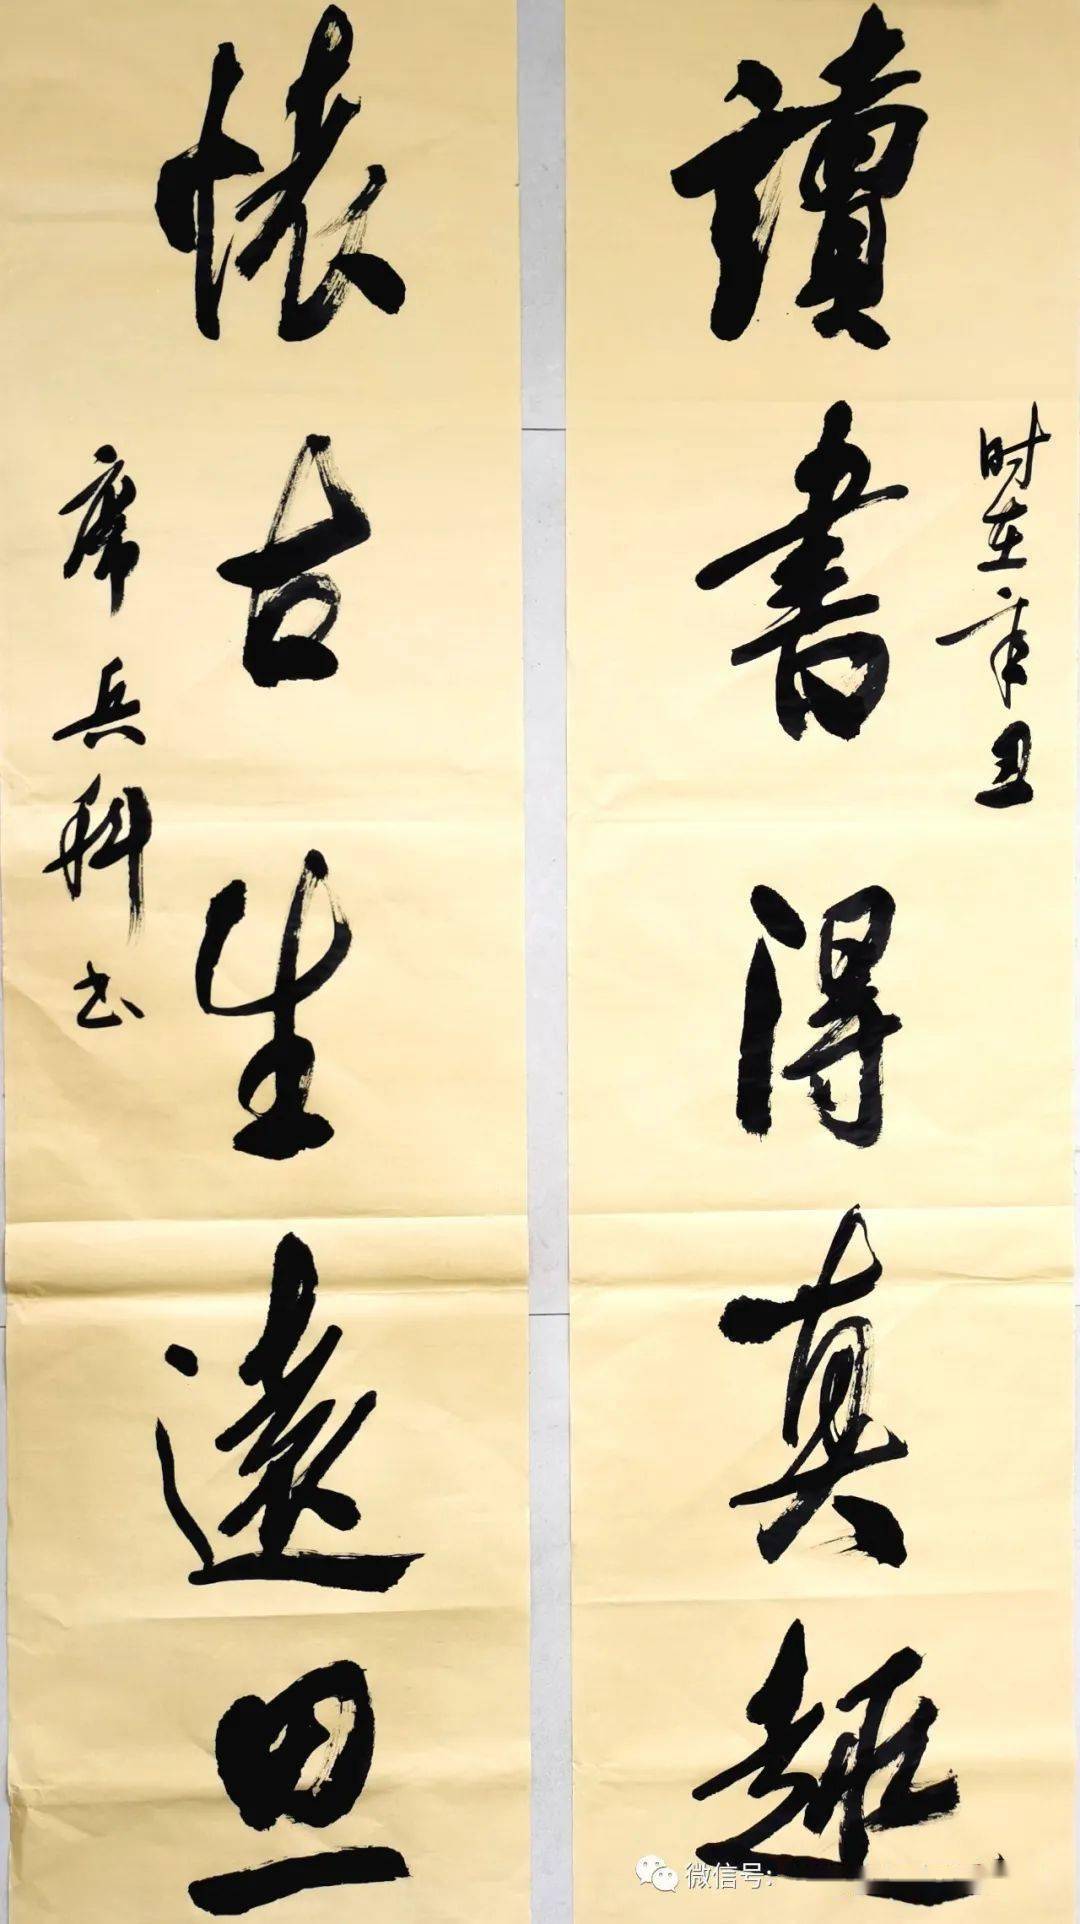 讀書得真趣
时在辛丑
懐古生遠思
席兵科书
微信号: